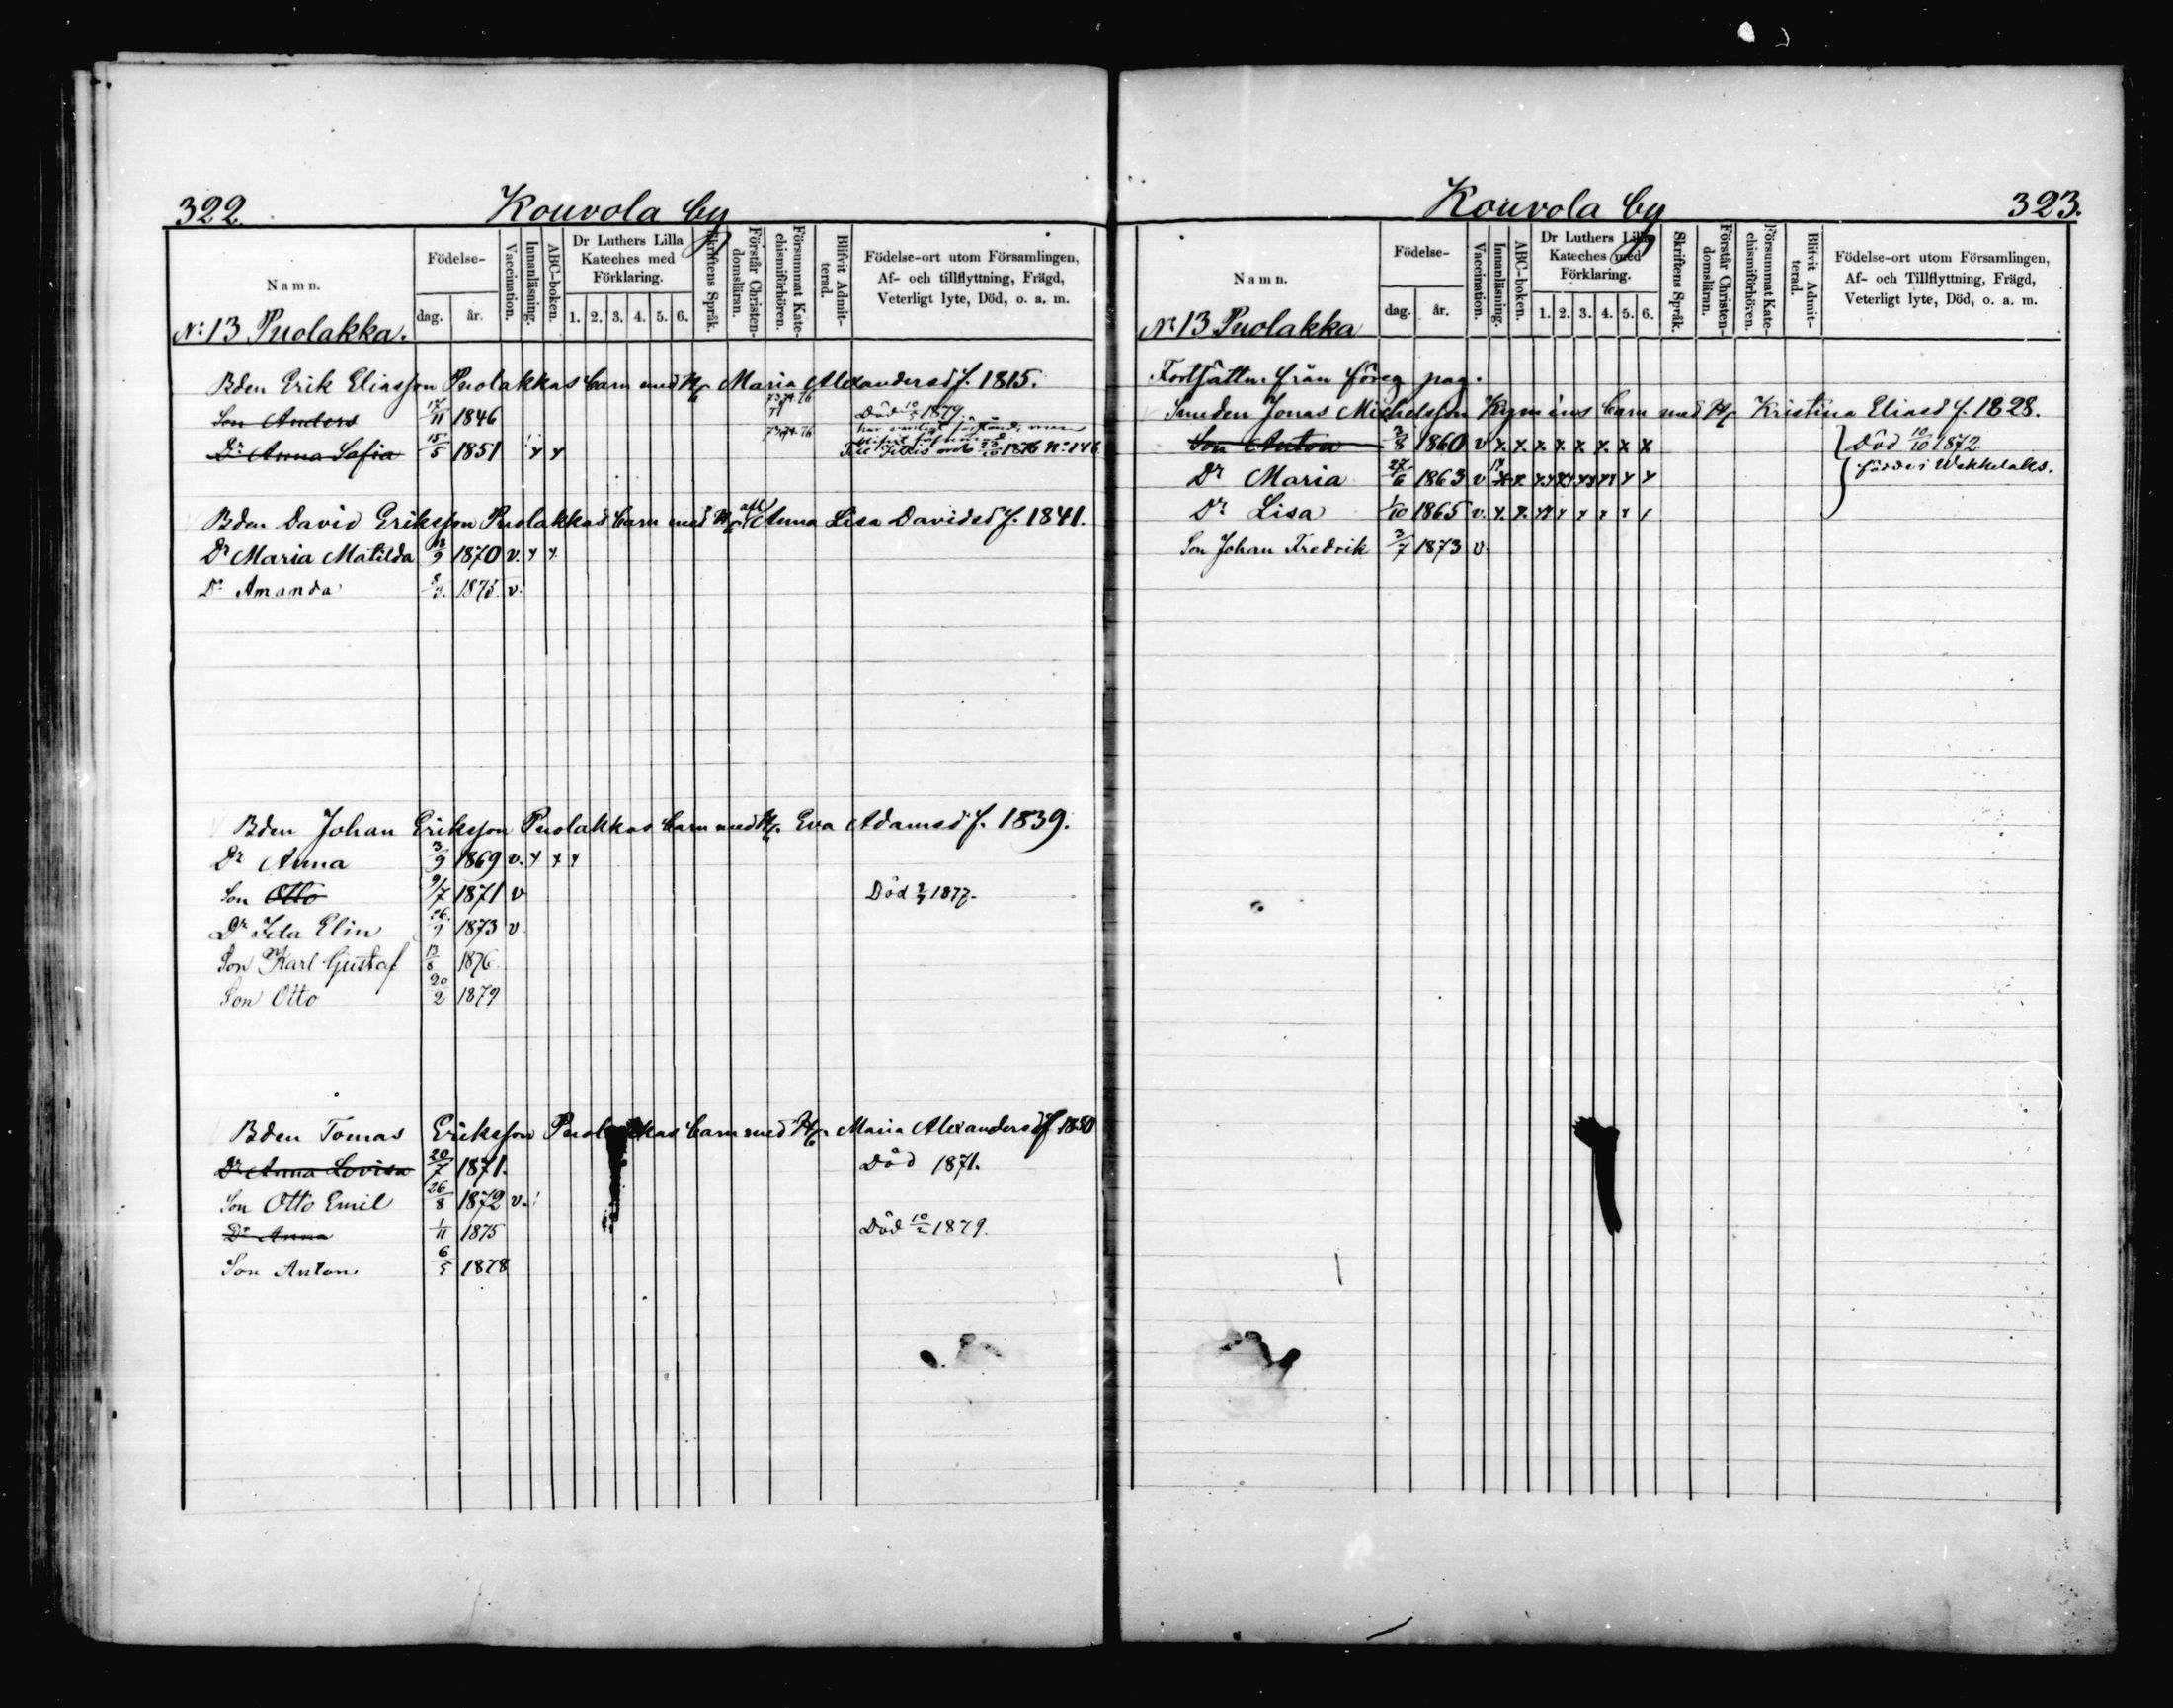 322. Kouvola by
Namn. Födelse- dag. år. Vaccination. Innanläsning. ABC-boken. Dr Luthers Lilla Kateches med Förklaring. 1. 2. 3. 4. 5. 6. Skriftens Språk. Förstår Christen-domsläran. Försummat Kate-chismiförhören. Blifvit Admit-terad. Födelse-ort utom Församlingen, Af- och tillflyttning, Frägd, Veterligt lyte, Död, o. a. m.
No 13 Puolakka.
Bden Erik Eliasson Puolakkas barn med H. Maria Alexandersd f. 1815.
Son Anders 17/11 1846 Död 1879.
Dr Anna Sofia 15/5 1851 x x 1876 No 146
Bden David Eriksson Puolakkas barn med afl. H. Anna Lisa Davidsd f. 1841.
Dr Maria Matilda 1870 v. x x
Dr Amanda 1875 v.
Bden Johan Eriksson Puolakkas barn med H. Eva Adamsd f. 1839.
Dr Anna 3/9 1869 v. x x x
Son Otto 9/7 1871 v Död 1877.
Dr Ida Elin 1873 v
Son Karl Gustaf 13/8 1876
Son Otto 20/2 1879
Bden Tomas Eriksson Puolakkas barn med H. Maria Alexandersd f. 1850
Dr Anna Lovisa 20/7 1871. Död 1871.
Son Otto Emil 26/8 1872 v.
Dr Anna 1/11 1875 Död 10/2 1879.
Son Anton 6/5 1878
Kouvola by 323.
Namn. Födelse- dag. år. Vaccination. Innanläsning. ABC-boken. Dr Luthers Lilla Kateches med Förklaring. 1. 2. 3. 4. 5. 6. Skriftens Språk. Förstår Christen-domsläran. Försummat Kate-chismiförhören. Blifvit Admit-terad. Födelse-ort utom Församlingen, Af- och Tillflyttning, Frägd, Veterligt lyte, Död, o. a. m.
No 13 Puolakka
Fortsättn. från föreg pag.
Smeden Jonas Michelsson Kyméns barn med H. Kristina Eliasd f. 1828.
Son Anton 3/8 1860 v x x x x x x x x Död 10/10 1872
Dr Maria 27/6 1863 v födde i Wekkelaks.
Dr Lisa 1/10 1865 v.
Son Johan Fredrik 3/7 1873 v